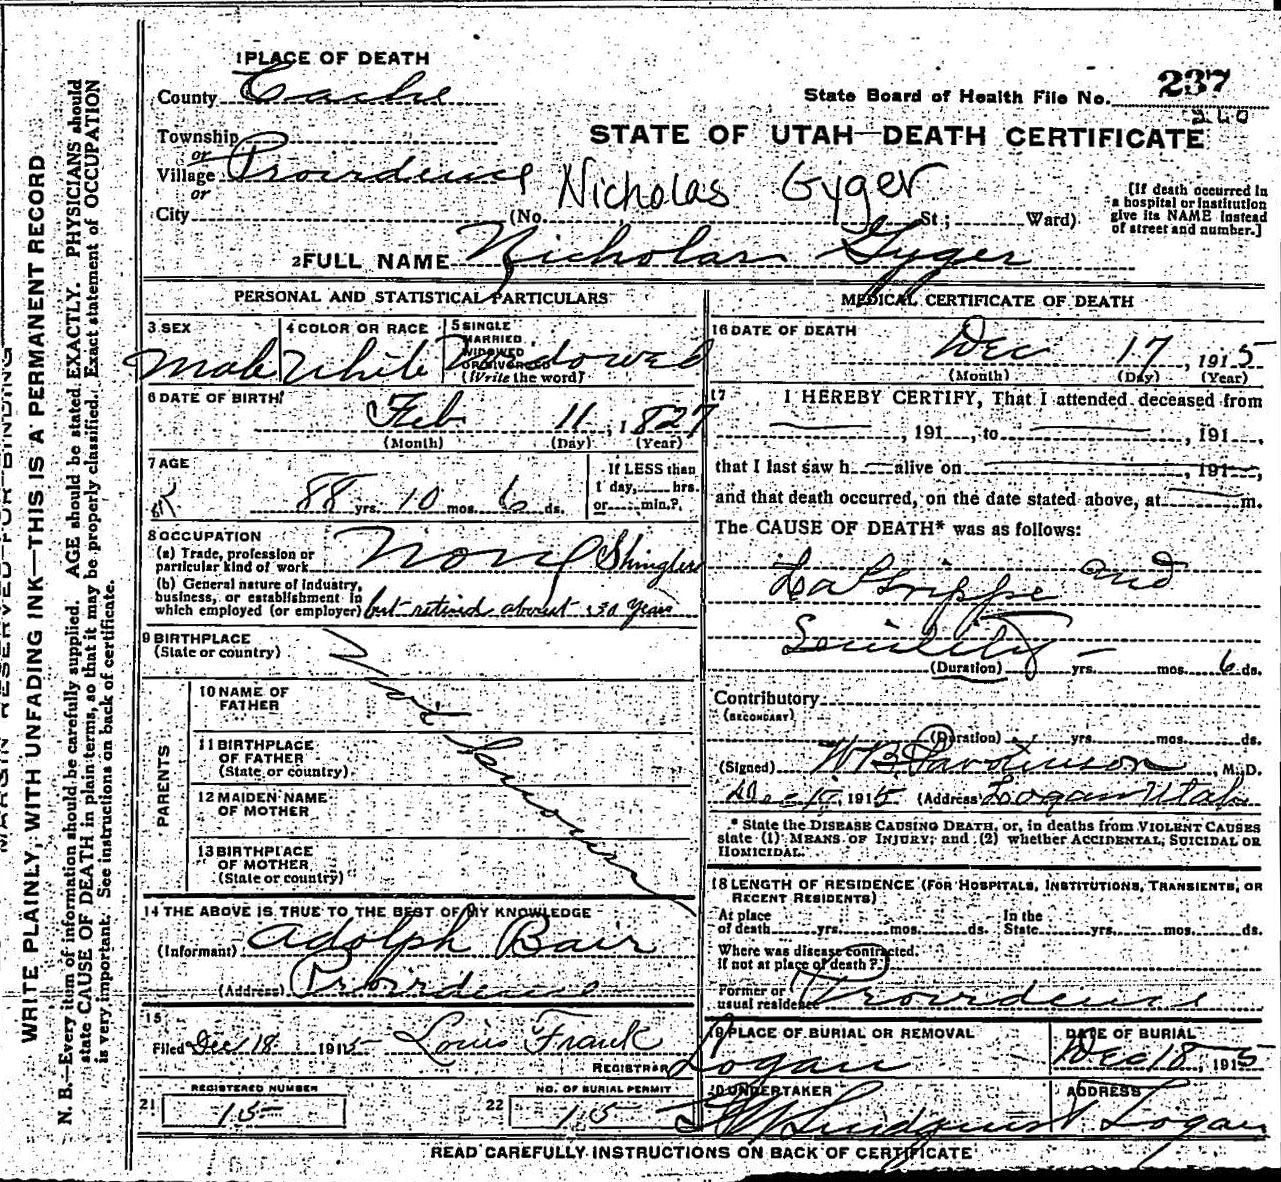 1 PLACE OF DEATH
County Cache
State Board of Health File No. 237
260
Township
or
Village Providence
or
City
STATE OF UTAH—DEATH CERTIFICATE
Nicholas Gyger
(No. St; Ward)
[If death occurred in
a hospital or institution
give its NAME instead
of street and number.]
2 FULL NAME Nicholas Gyger
PERSONAL AND STATISTICAL PARTICULARS
3 SEX
Male
4 COLOR OR RACE
White
5 SINGLE
MARRIED
WIDOWED
OR DIVORCED
(Write the word)
Widowed
6 DATE OF BIRTH
Feb 11, 1827
(Month) (Day) (Year)
7 AGE
88 yrs. 10 mos. 6 ds.
If LESS than
1 day, hrs.
or min.?
8 OCCUPATION
(a) Trade, profession or
particular kind of work None Shingler
(b) General nature of industry,
business, or establishment in
which employed (or employer) but retired about 30 years
9 BIRTHPLACE
(State or country)
PARENTS
10 NAME OF
FATHER
11 BIRTHPLACE
OF FATHER
(State or country)
12 MAIDEN NAME
OF MOTHER
13 BIRTHPLACE
OF MOTHER
(State or country)
Not known
14 THE ABOVE IS TRUE TO THE BEST OF MY KNOWLEDGE
(Informant) Adolph Bair
(Address) Providence
15
Filed Dec 18 1915 Louis Frank
REGISTRAR
REGISTERED NUMBER
21 15
NO. OF BURIAL PERMIT
22 15
MEDICAL CERTIFICATE OF DEATH
16 DATE OF DEATH
Dec 17, 1915
(Month) (Day) (Year)
17 I HEREBY CERTIFY, That I attended deceased from
, 191 , to , 191 ,
that I last saw h alive on , 191 ,
and that death occurred, on the date stated above, at m.
The CAUSE OF DEATH* was as follows:
La Grippe and
Senility
(Duration) yrs. mos. 6 ds.
Contributory
(SECONDARY)
(Duration) yrs. mos. ds.
(Signed) W B Parkinson, M. D.
Dec 1915 (Address) Logan Utah
* State the DISEASE CAUSING DEATH, or, in deaths from VIOLENT CAUSES
state (1) MEANS OF INJURY; and (2) whether ACCIDENTAL, SUICIDAL OR
HOMICIDAL.
18 LENGTH OF RESIDENCE (FOR HOSPITALS, INSTITUTIONS, TRANSIENTS, OR
RECENT RESIDENTS)
At place
of death yrs. mos. ds.
In the
State yrs. mos. ds.
Where was disease contracted.
If not at place of death?
Former or
usual residence Providence
19 PLACE OF BURIAL OR REMOVAL
Logan
DATE OF BURIAL
Dec 18, 1915
20 UNDERTAKER
Lundquist
ADDRESS
Logan
READ CAREFULLY INSTRUCTIONS ON BACK OF CERTIFICATE
MARGIN RESERVED FOR BINDING
WRITE PLAINLY, WITH UNFADING INK—THIS IS A PERMANENT RECORD
N. B.—Every item of information should be carefully supplied. AGE should be stated EXACTLY. PHYSICIANS should
state CAUSE OF DEATH in plain terms, so that it may be properly classified. Exact statement of OCCUPATION
is very important. See instructions on back of certificate.